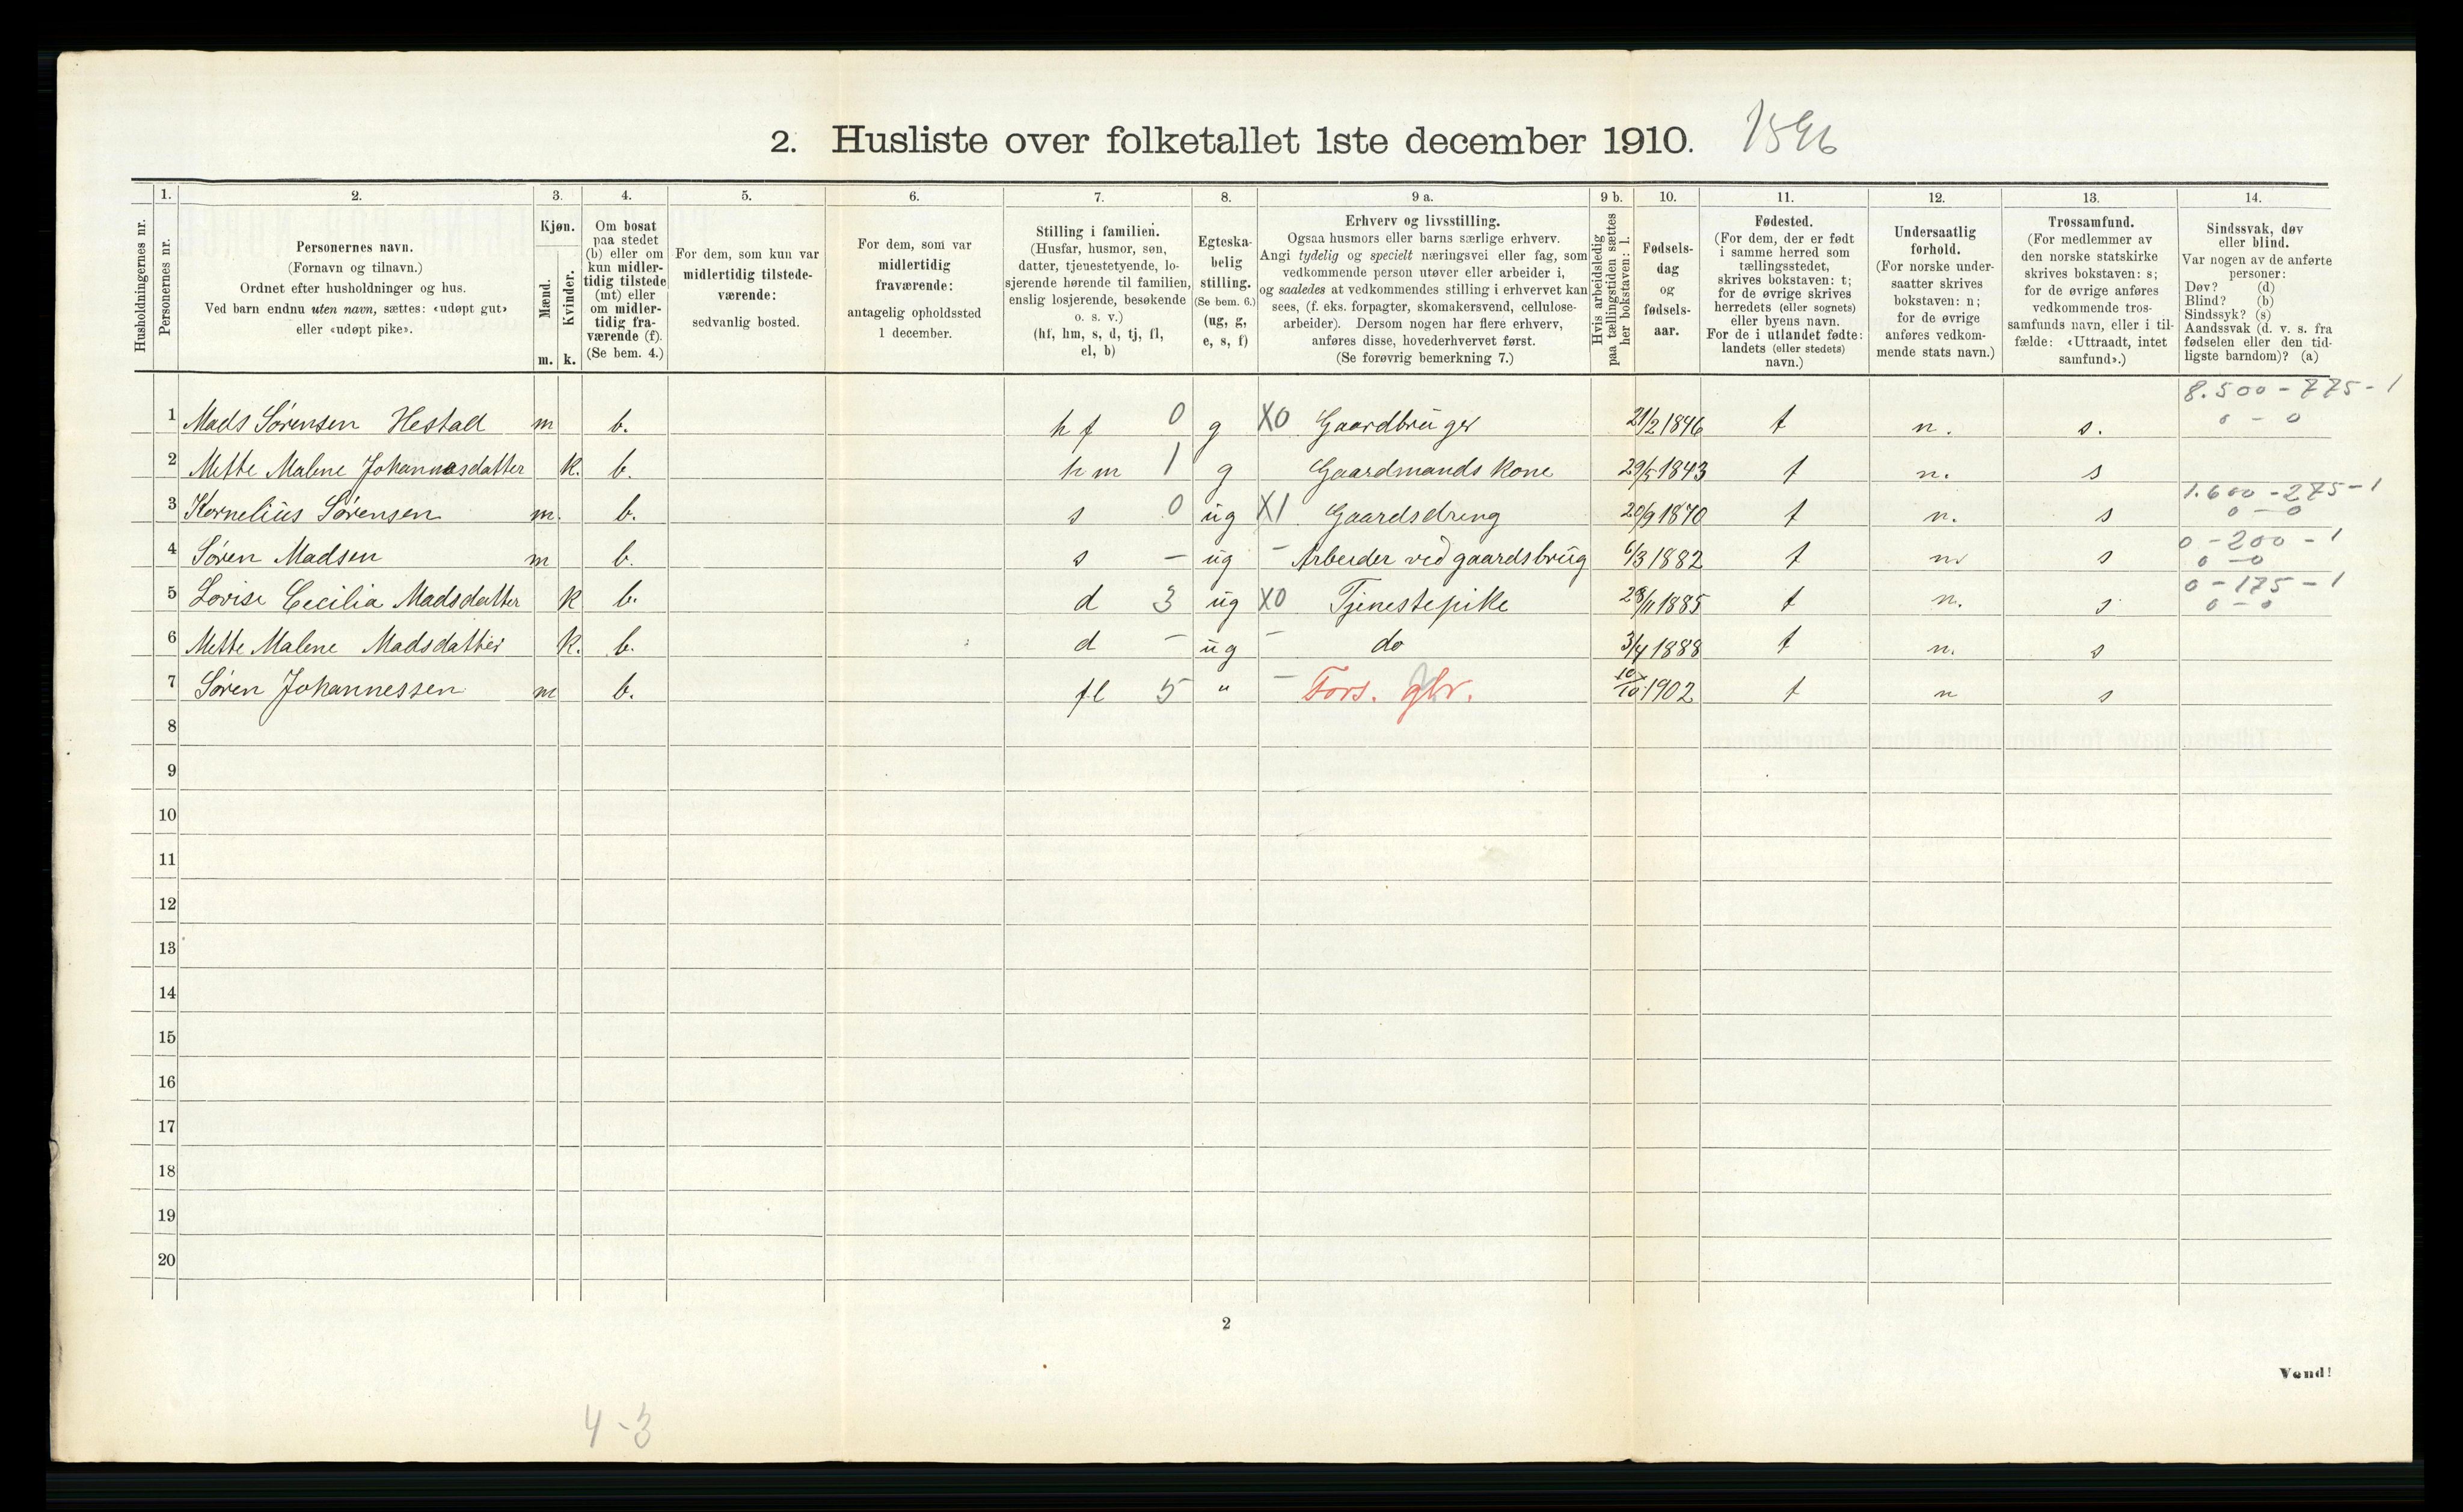 2. Husliste over folketallet 1ste december 1910.
Husholdningernes nr.
1.
Personernes nr.
2.
Personernes navn.
(Fornavn og tilnavn.)
Ordnet efter husholdninger og hus.
Ved barn endnu uten navn, sættes: «udøpt gut»
eller «udøpt pike».
3.
Kjøn.
Mænd.
Kvinder.
m. k.
4.
Om bosat
paa stedet
(b) eller om
kun midler-
tidig tilstede
(mt) eller
om midler-
tidig fra-
værende (f).
(Se bem. 4.)
5.
For dem, som kun var
midlertidig tilstede-
værende:
sedvanlig bosted.
6.
For dem, som var
midlertidig
fraværende:
antagelig opholdssted
1 december.
7.
Stilling i familien.
(Husfar, husmor, søn,
datter, tjenestetyende, lo-
sjerende hørende til familien,
enslig losjerende, besøkende
o. s. v.)
(hf, hm, s, d, tj, fl,
el, b)
8.
Egteska-
belig
stilling.
(Se bem. 6.)
(ug, g,
e, s, f)
9 a.
Erhverv og livsstilling.
Ogsaa husmors eller barns særlige erhverv.
Angi tydelig og specielt næringsvei eller fag, som
vedkommende person utøver eller arbeider i,
og saaledes at vedkommendes stilling i erhvervet kan
sees, (f. eks. forpagter, skomakersvend, cellulose-
arbeider). Dersom nogen har flere erhverv,
anføres disse, hovederhvervet først.
(Se forøvrig bemerkning 7.)
9 b.
Hvis arbeidsledig
paa tællingstiden sættes
her bokstaven: l.
10.
Fødsels-
dag
og
fødsels-
aar.
11.
Fødested.
(For dem, der er født
i samme herred som
tællingsstedet,
skrives bokstaven: t;
for de øvrige skrives
herredets (eller sognets)
eller byens navn.
For de i utlandet fødte:
landets (eller stedets)
navn.)
12.
Undersaatlig
forhold.
(For norske under-
saatter skrives
bokstaven: n;
for de øvrige
anføres vedkom-
mende stats navn.)
13.
Trossamfund.
(For medlemmer av
den norske statskirke
skrives bokstaven: s;
for de øvrige anføres
vedkommende tros-
samfunds navn, eller i til-
fælde: «Uttraadt, intet
samfund».)
14.
Sindssvak, døv
eller blind.
Var nogen av de anførte
personer:
Døv? (d)
Blind? (b)
Sindssyk? (s)
Aandssvak (d. v. s. fra
fødselen eller den tid-
ligste barndom)? (a)
8.500 - 775 - 1
1 Mads Sørensen Hestad m b. hf 0 g X0 Gaardbruger 21/2 1846 t n. s. 0 - 0
2 Mette Malene Johannesdatter k. b. hm 1 g Gaardmands kone 29/5 1843 t n. s
1.600 - 275 - 1
3 Kornelius Sørensen m. b. s 0 ug X1 Gaardsdreng 20/9 1870 t n. s 0 - 0
0 - 200 - 1
4 Søren Madsen m b. s - ug - Arbeider ved gaardsbrug 6/3 1882 t n. s 0 - 0
0 - 175 - 1
5 Lovise Cecilia Madsdatter k b. d 3 ug X0 Tjenestepike 28/11 1885 t n. s 0 - 0
6 Mette Malene Madsdatter k. b. d - ug - do 3/4 1888 t n. s
7 Søren Johannessen m b. fl 5 " - Fors. gbr. 10/10 1902 t n s
8
9
10
11
12
13
14
15
16
17
18
19
20
2
Vend!
4-3